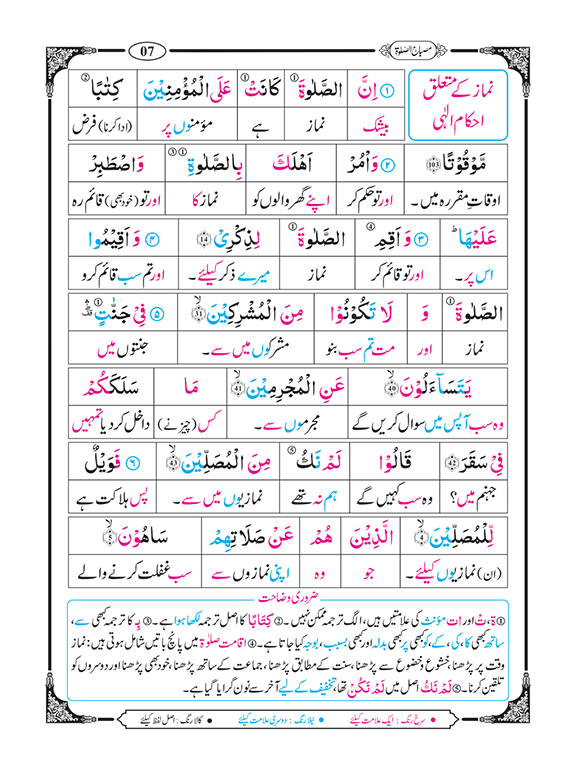 07
مصباح الصلوٰۃ
نماز کے متعلق
احکام الٰہی
① اِنَّ الصَّلٰوةَ① كَانَتْ① عَلَى الْمُؤْمِنِيْنَ كِتٰبًا②
بیشک نماز ہے مؤمنوں پر (ادا کرنا) فرض
مَّوْقُوْتًا 103 ② وَاْمُرْ اَهْلَكَ بِالصَّلٰوةِ①③ وَاصْطَبِرْ
اوقات مقررہ میں۔ اور تو حکم کر اپنے گھر والوں کو نماز کا اور تو (خود بھی) قائم رہ
عَلَيْهَا ؕ ③ وَ اَقِمِ④ الصَّلٰوةَ① لِذِكْرِيْ 14 ④ وَ اَقِيْمُوا
اس پر۔ اور تو قائم کر نماز میرے ذکر کیلئے۔ اور تم سب قائم کرو
الصَّلٰوةَ① وَ لَا تَكُوْنُوْا مِنَ الْمُشْرِكِيْنَ 31 ⑤ فِيْ جَنّٰتٍ①
نماز اور مت تم سب بنو مشرکوں میں سے۔ جنتوں میں
يَتَسَآءَلُوْنَ 40 عَنِ الْمُجْرِمِيْنَ 41 مَا سَلَكَكُمْ
وہ سب آپس میں سوال کریں گے مجرموں سے۔ کس (چیز نے) داخل کر دیا تمہیں
فِيْ سَقَرَ 42 قَالُوْا لَمْ نَكُ⑤ مِنَ الْمُصَلِّيْنَ 43 ⑥ فَوَيْلٌ
جہنم میں؟ وہ سب کہیں گے ہم نہ تھے نمازیوں میں سے۔ پس ہلاکت ہے
لِّلْمُصَلِّيْنَ 4 الَّذِيْنَ هُمْ عَنْ صَلَاتِهِمْ سَاهُوْنَ 5
(ان) نمازیوں کیلئے۔ جو وہ اپنی نمازوں سے سب غفلت کرنے والے
ضروری وضاحت
① ة، تْ اور ات مؤنث کی علامتیں ہیں، الگ ترجمہ ممکن نہیں۔ ② كِتَابًا کا اصل ترجمہ لکھا ہوا ہے۔ ③ بِ کا ترجمہ کبھی سے،
ساتھ کبھی کا، کی، کے، کو کبھی پر کبھی بدلہ اور کبھی بسبب، بوجہ کیا جاتا ہے۔ ④ اقامت صلوٰۃ میں پانچ باتیں شامل ہوتی ہیں: نماز
وقت پر پڑھنا، خشوع و خضوع سے پڑھنا، سنت کے مطابق پڑھنا، جماعت کے ساتھ پڑھنا، خود بھی پڑھنا اور دوسروں کو
تلقین کرنا۔ ⑤ لَمْ نَكُ اصل میں لَمْ نَكُنْ تھا، تخفیف کے لیے آخر سے نون گرایا گیا ہے۔
• سرخ رنگ: ایک علامت کیلئے • نیلا رنگ: دوسری علامت کیلئے • کالا رنگ: اصل لفظ کیلئے